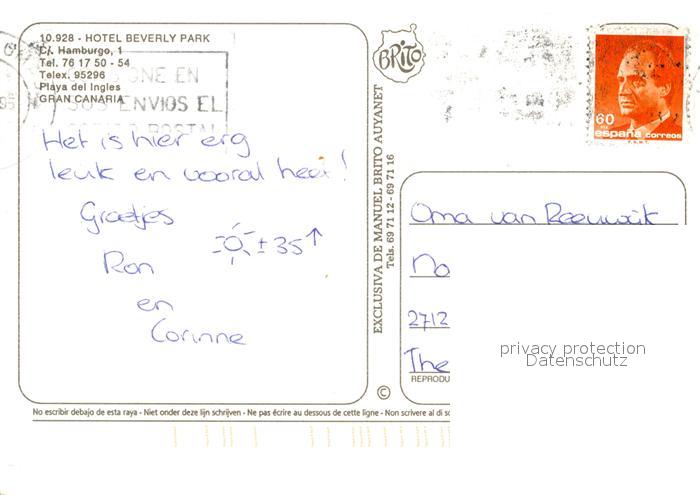 10.928 - HOTEL BEVERLY PARK
C/. Hamburgo, 1
Tel. 76 17 50 - 54
Telex. 95296
Playa del Ingles
GRAN CANARIA
GNE EN
SUS ENVIOS EL
POSTAL
Het is hier erg
leuk en vooral heet!
Groetjes
± 35 ↑
Ron
en
Corinne
BRITO
EXCLUSIVA DE MANUEL BRITO AUYANET
Tels. 69 71 12 - 69 71 16
©
60
españa correos
F.N.M.T.
Oma van Reeuwijk
No
2712
The
REPRODU
privacy protection
Datenschutz
No escribir debajo de esta raya - Niet onder deze lijn schrijven - Ne pas écrire au dessous de cette ligne - Non scrivere al di so